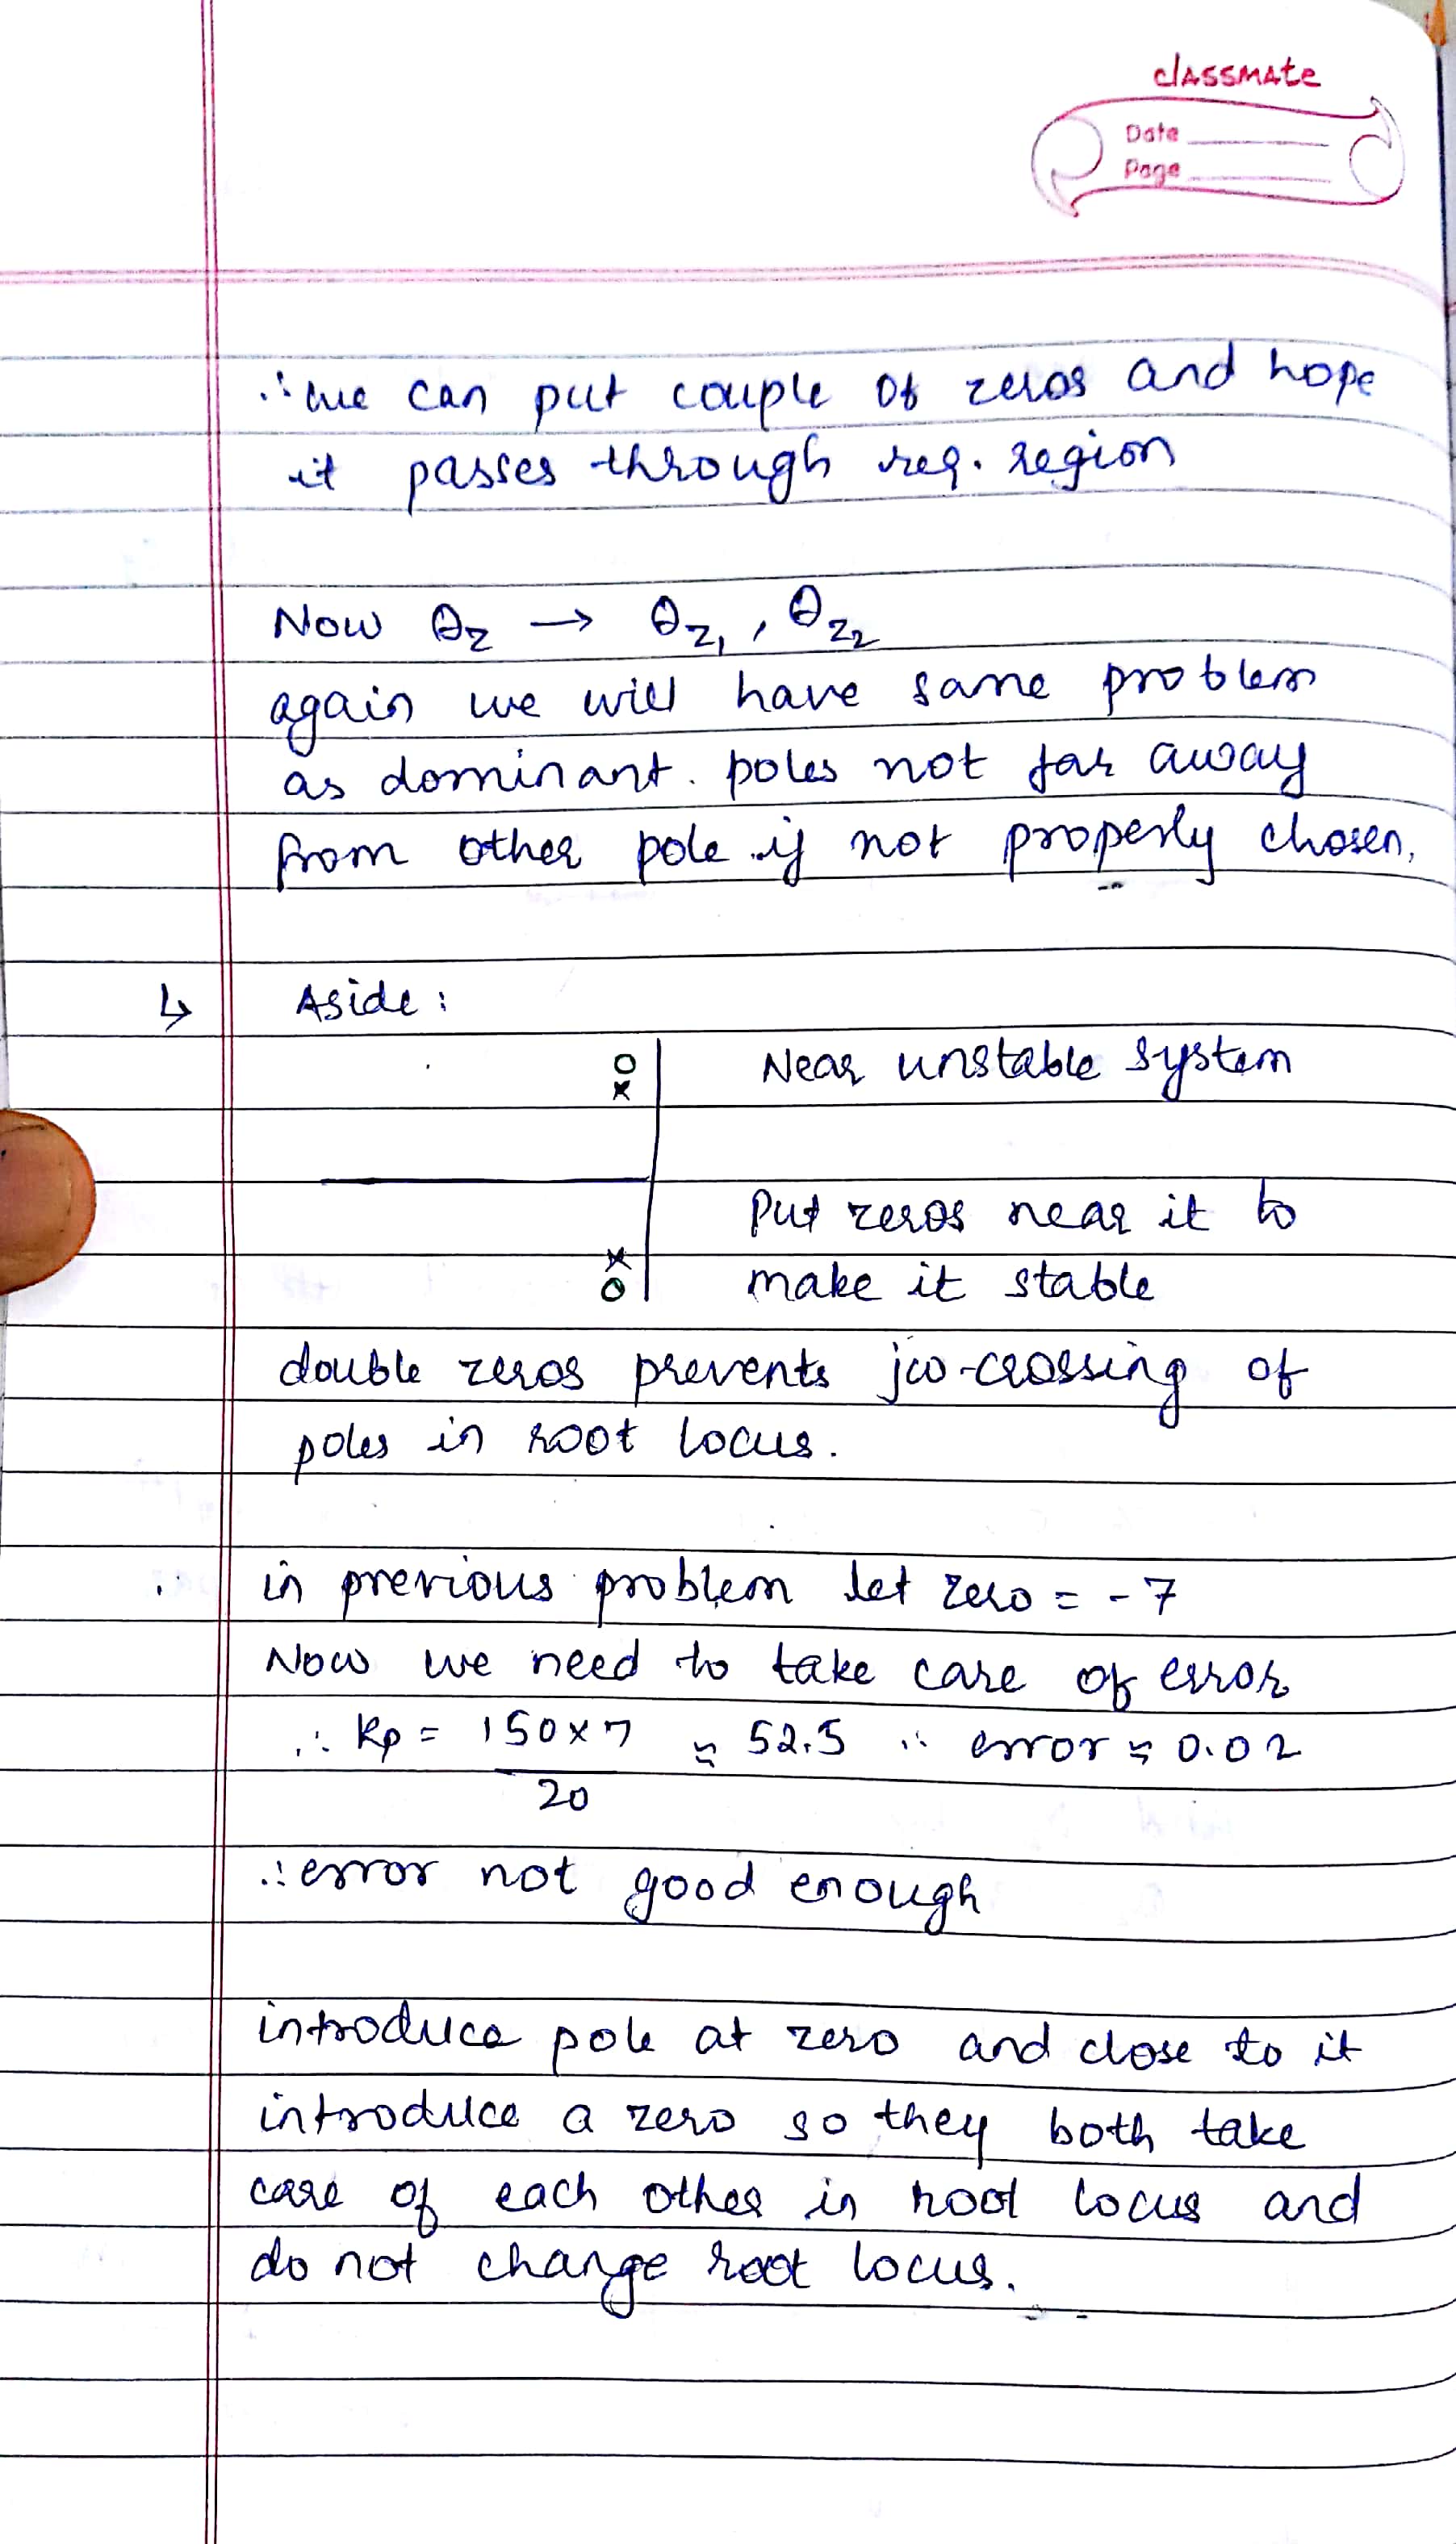 classmate
Date
Page
∴ we can put couple of zeros and hope
it passes through req. region
Now θz → θz₁, θz₂
again we will have same problem
as dominant poles not far away
from other pole if not properly chosen.
↳ Aside:
Near unstable system
Put zeros near it to
make it stable
double zeros prevents jω-crossing of
poles in root locus.
in previous problem let zero = -7
Now we need to take care of error
∴ Kp = 150×7/20 ≈ 52.5 ∴ error ≈ 0.02
∴ error not good enough
introduce pole at zero and close to it
introduce a zero so they both take
care of each other in root locus and
do not change root locus.